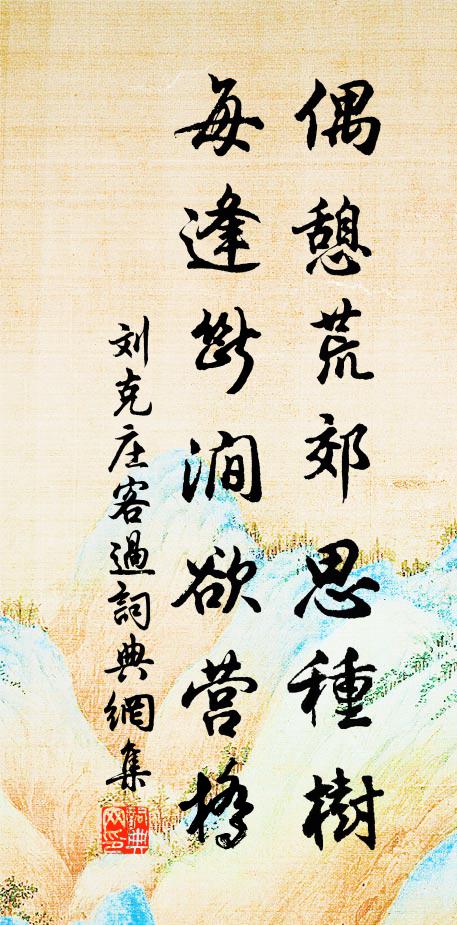 偶憩荒郊思種樹
每逢斷澗欲营橋
刘克庄客過詞典網集
詞典網印